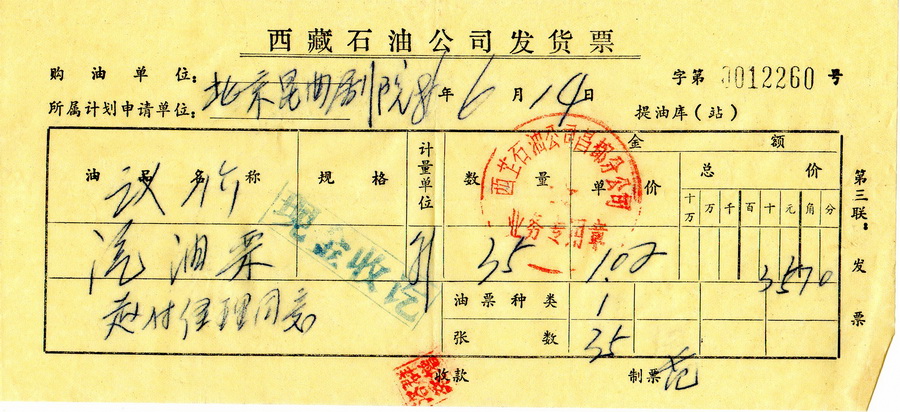 西藏石油公司发货票
购油单位: 北京昆曲剧院 年 6 月 14 日 字第 0012260 号
所属计划申请单位: 提油库(站)
油品名称 规格 计量单位 数量 金额
单价 总价
十万 万 千 百 十 元 角 分
议价
汽油票 35 1.02 3570
赵付经理同意 油票种类 1
张数 35
收款 制票
第三联: 发票
西芷石油公司昌都分公司
业务专用章
现金收讫